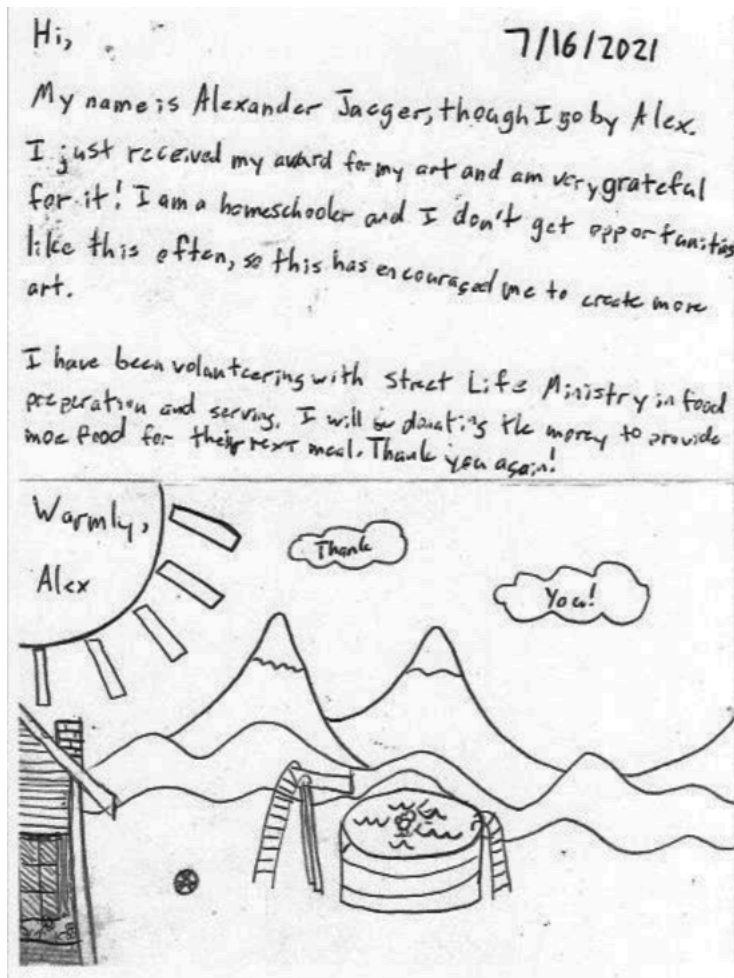 Hi,
7/16/2021
My name is Alexander Jaeger, though I go by Alex.
I just received my award for my art and am very grateful
for it! I am a homeschooler and I don't get opportunities
like this often, so this has encouraged me to create more
art.
I have been volunteering with Street Life Ministry in food
preperation and serving. I will be donating the money to provide
more food for their next meal. Thank you again!
Warmly,
Alex
Thank
You!